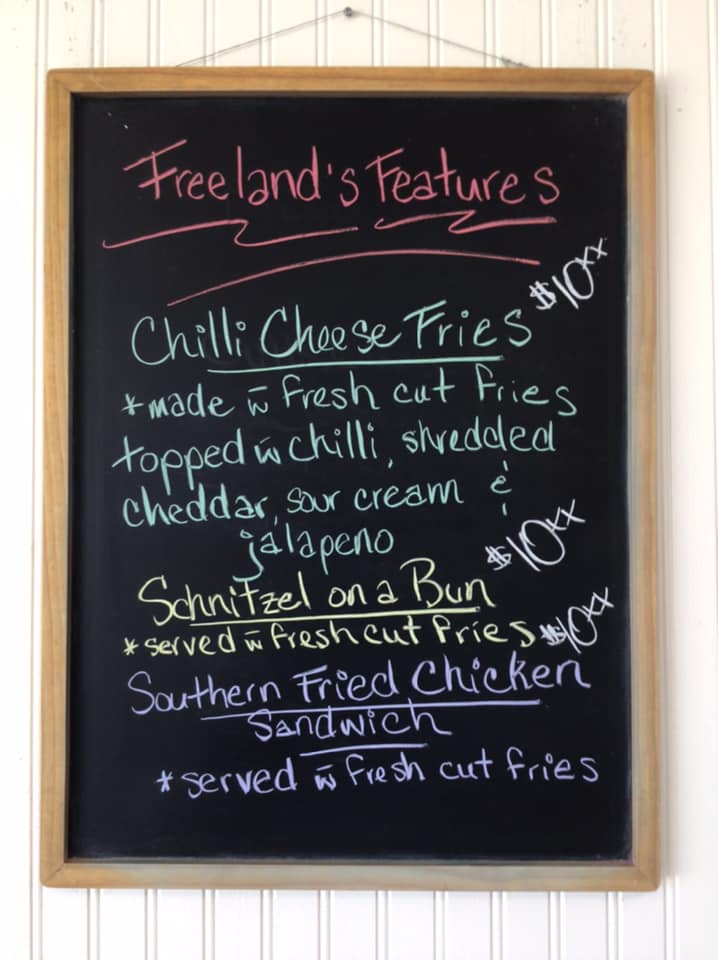 Freeland's Features
$10xx
Chilli Cheese Fries
*made w̄ fresh cut fries
topped w̄ chilli, shredded
cheddar, sour cream &
jalapeno
$10xx
Schnitzel on a Bun
*served w̄ fresh cut fries
$10xx
Southern Fried Chicken
Sandwich
*served w̄ fresh cut fries